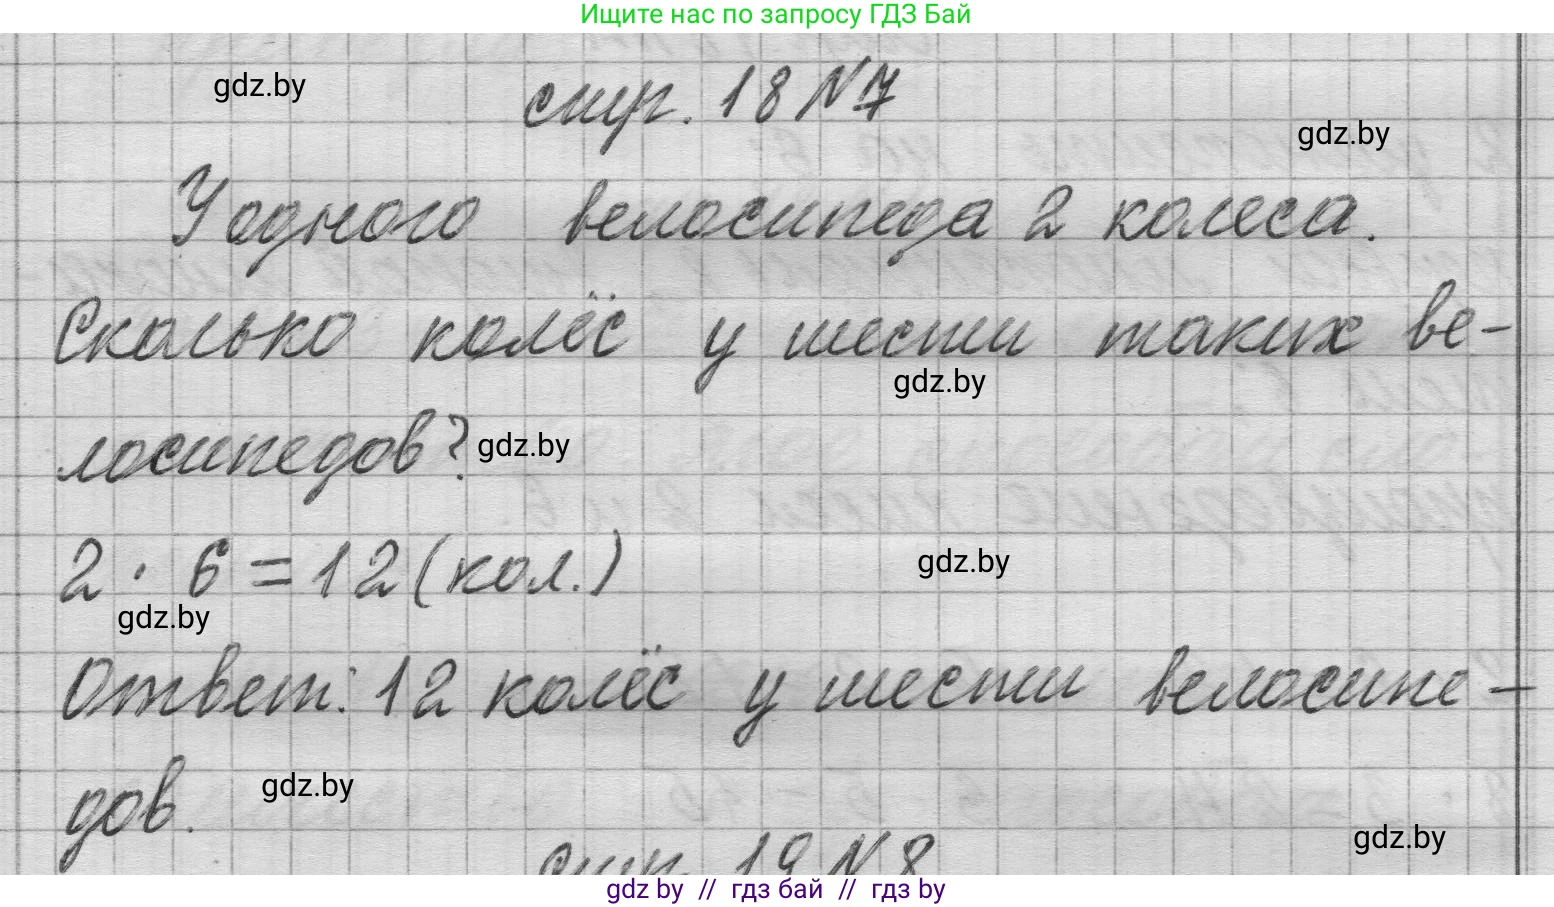 Ищите нас по запросу ГДЗ Бай
gdz.by
стр. 18 №7
gdz.by
У одного велосипеда 2 колеса.
Сколько колёс у шести таких ве-
gdz.by
лосипедов?
gdz.by
2 · 6 = 12 (кол.)
gdz.by
gdz.by
Ответ: 12 колёс у шести велосипе-
дов.
gdz.by
gdz.by
стр. 19 №8
gdz by // гдз бай // гдз by